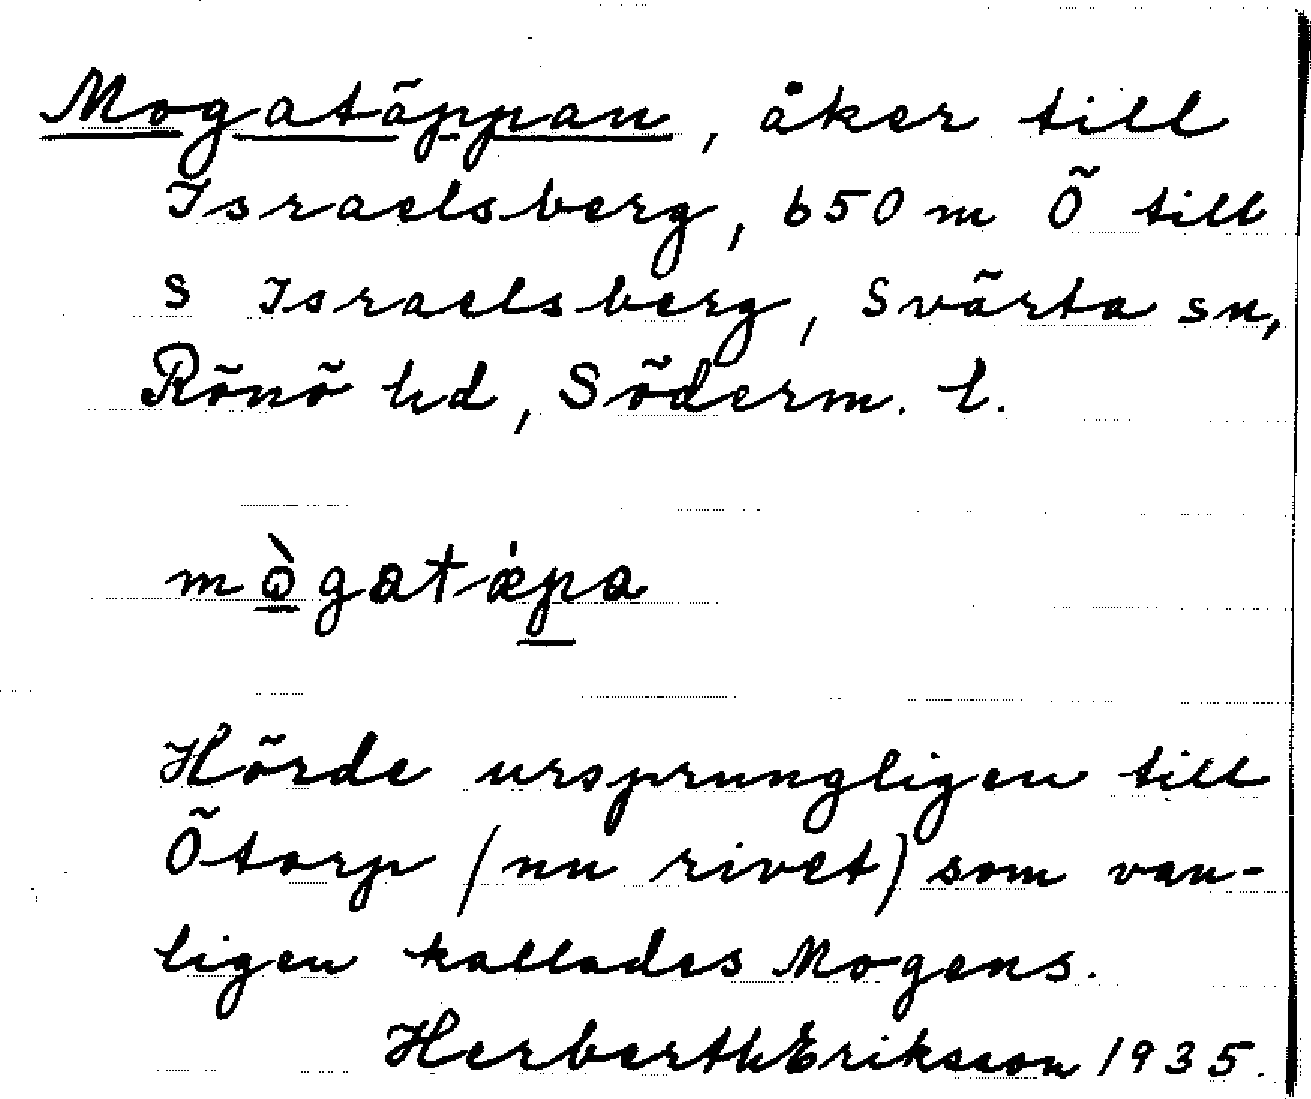 Mogatäppan, åker till
Israelsberg, 650 m Ö till
s Israelsberg, Svärta sn,
Rönö hd, Söderm. l.
mò̱gatæ̍p̱a
Hörde ursprungligen till
Ötorp (nu rivet) som van-
ligen kallades Mogens.
Herberth Eriksson 1935.